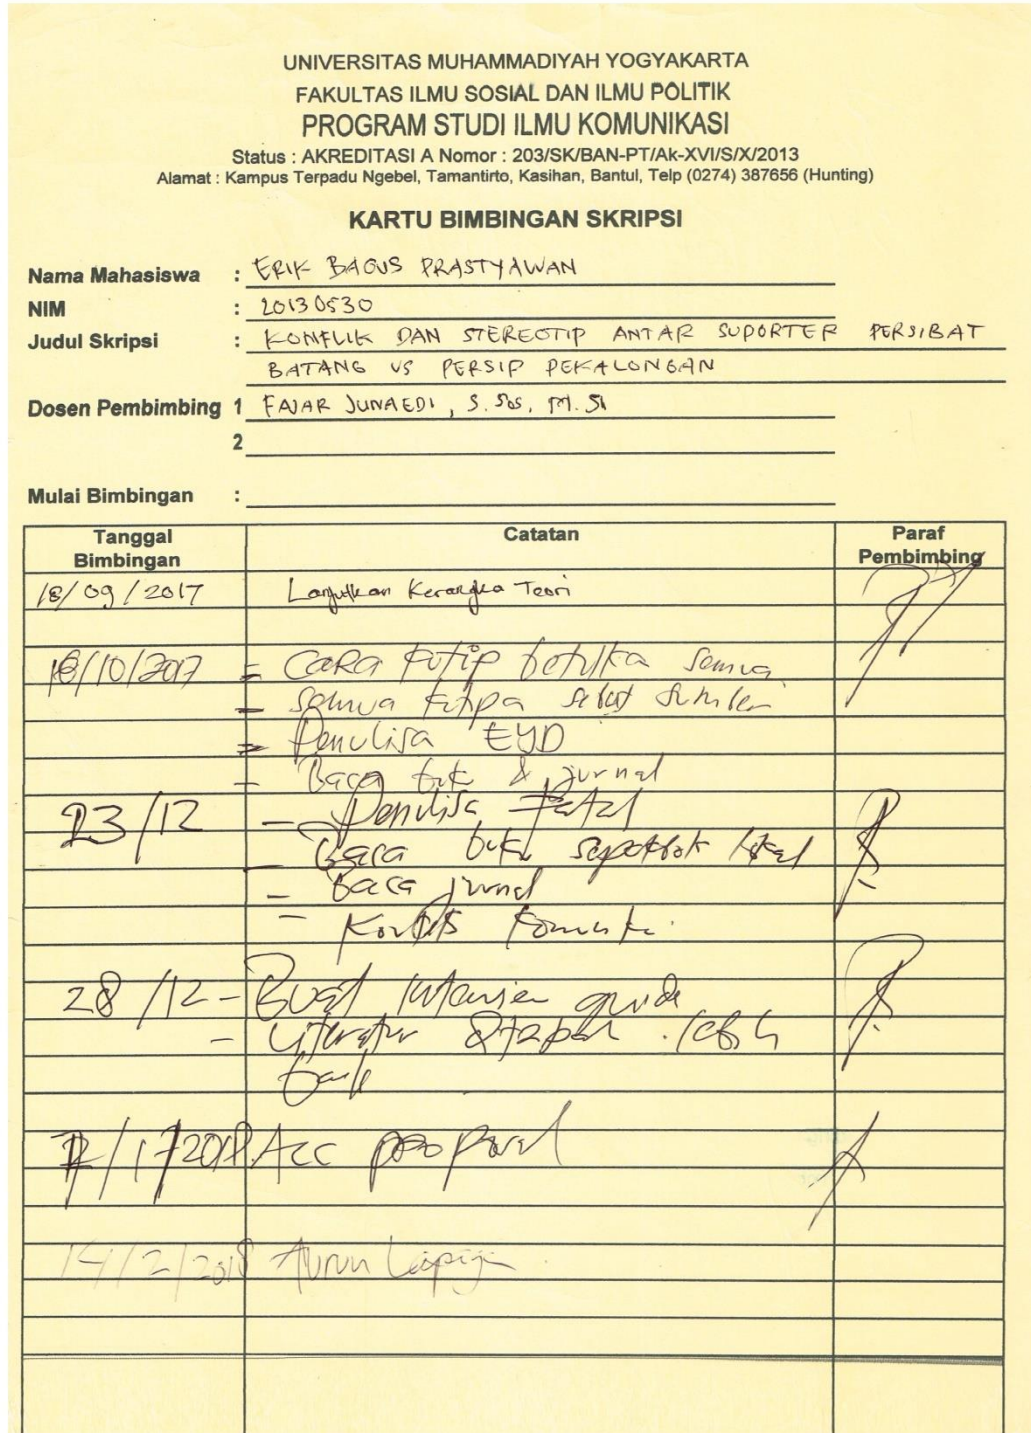 UNIVERSITAS MUHAMMADIYAH YOGYAKARTA
FAKULTAS ILMU SOSIAL DAN ILMU POLITIK
PROGRAM STUDI ILMU KOMUNIKASI
Status : AKREDITASI A Nomor : 203/SK/BAN-PT/Ak-XVI/S/X/2013
Alamat : Kampus Terpadu Ngebel, Tamantirto, Kasihan, Bantul, Telp (0274) 387656 (Hunting)
KARTU BIMBINGAN SKRIPSI
Nama Mahasiswa : ERIK BAGUS PRASTYAWAN
NIM : 20130530
Judul Skripsi : KONFLIK DAN STEREOTIP ANTAR SUPORTER PERSIBAT
BATANG VS PERSIP PEKALONGAN
Dosen Pembimbing 1 FAJAR JUNAEDI, S.Sos, M.Si
2
Mulai Bimbingan :
Tanggal Bimbingan Catatan Paraf Pembimbing
18/09/2017 Lanjutkan Kerangka Teori
18/10/2017 - Cara kutip betulka semua
- semua kutipa sebut sumber
- Penulisa EYD
- Baca buku & jurnal
23/12 - Penulisa
- Baca buku sepakbola lokal
- Baca jurnal
-
28/12 - Buat guide
- Literatur lebih
baik
/1/2018 Acc proposal
14/2/2018 Turun Lapangan